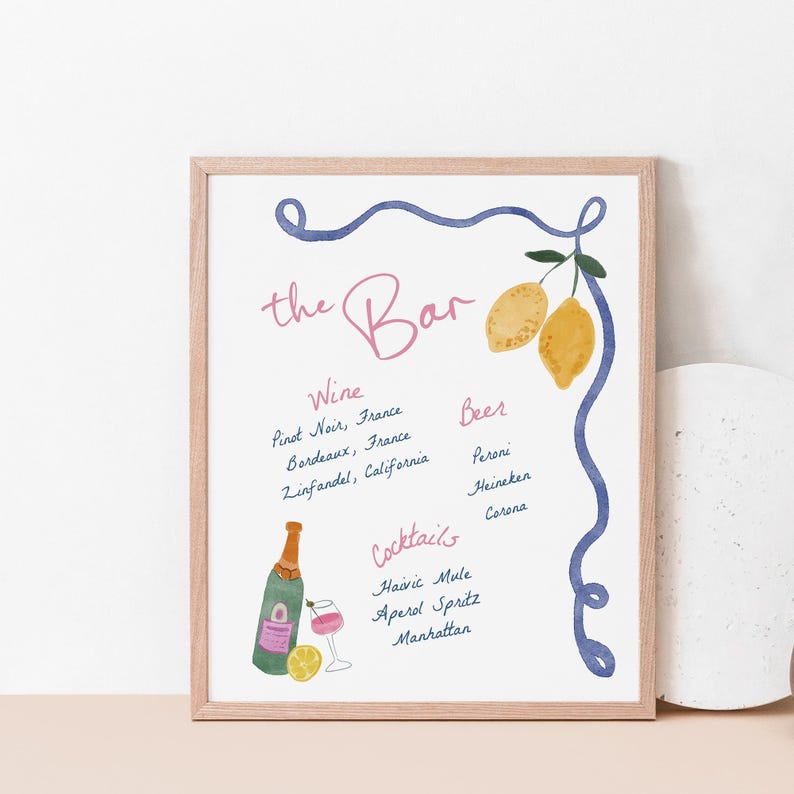 the Bar
Wine
Pinot Noir, France
Bordeaux, France
Zinfandel, California
Beer
Peroni
Heineken
Corona
Cocktails
Haivic Mule
Aperol Spritz
Manhattan